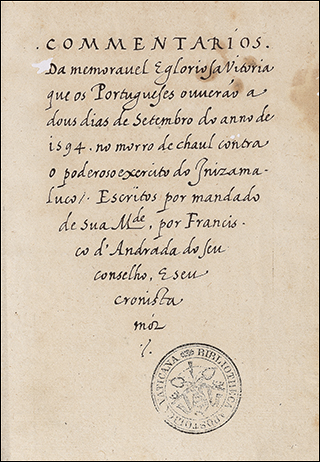 . COMMENTARIOS.
Da memorauel E gloriosa Vitoria
que os Portugueses ouuerão a
dous dias de Setembro do anno de
1594. no morro de chaul contra
o poderoso exercito do Jnizama-
luco/. Escritos por mandado
de sua M.de, por Francis-
co d'Andrada do seu
conselho, E seu
cronista
mór
./.
BIBLIOTHECA APOSTOLICA VATICANA